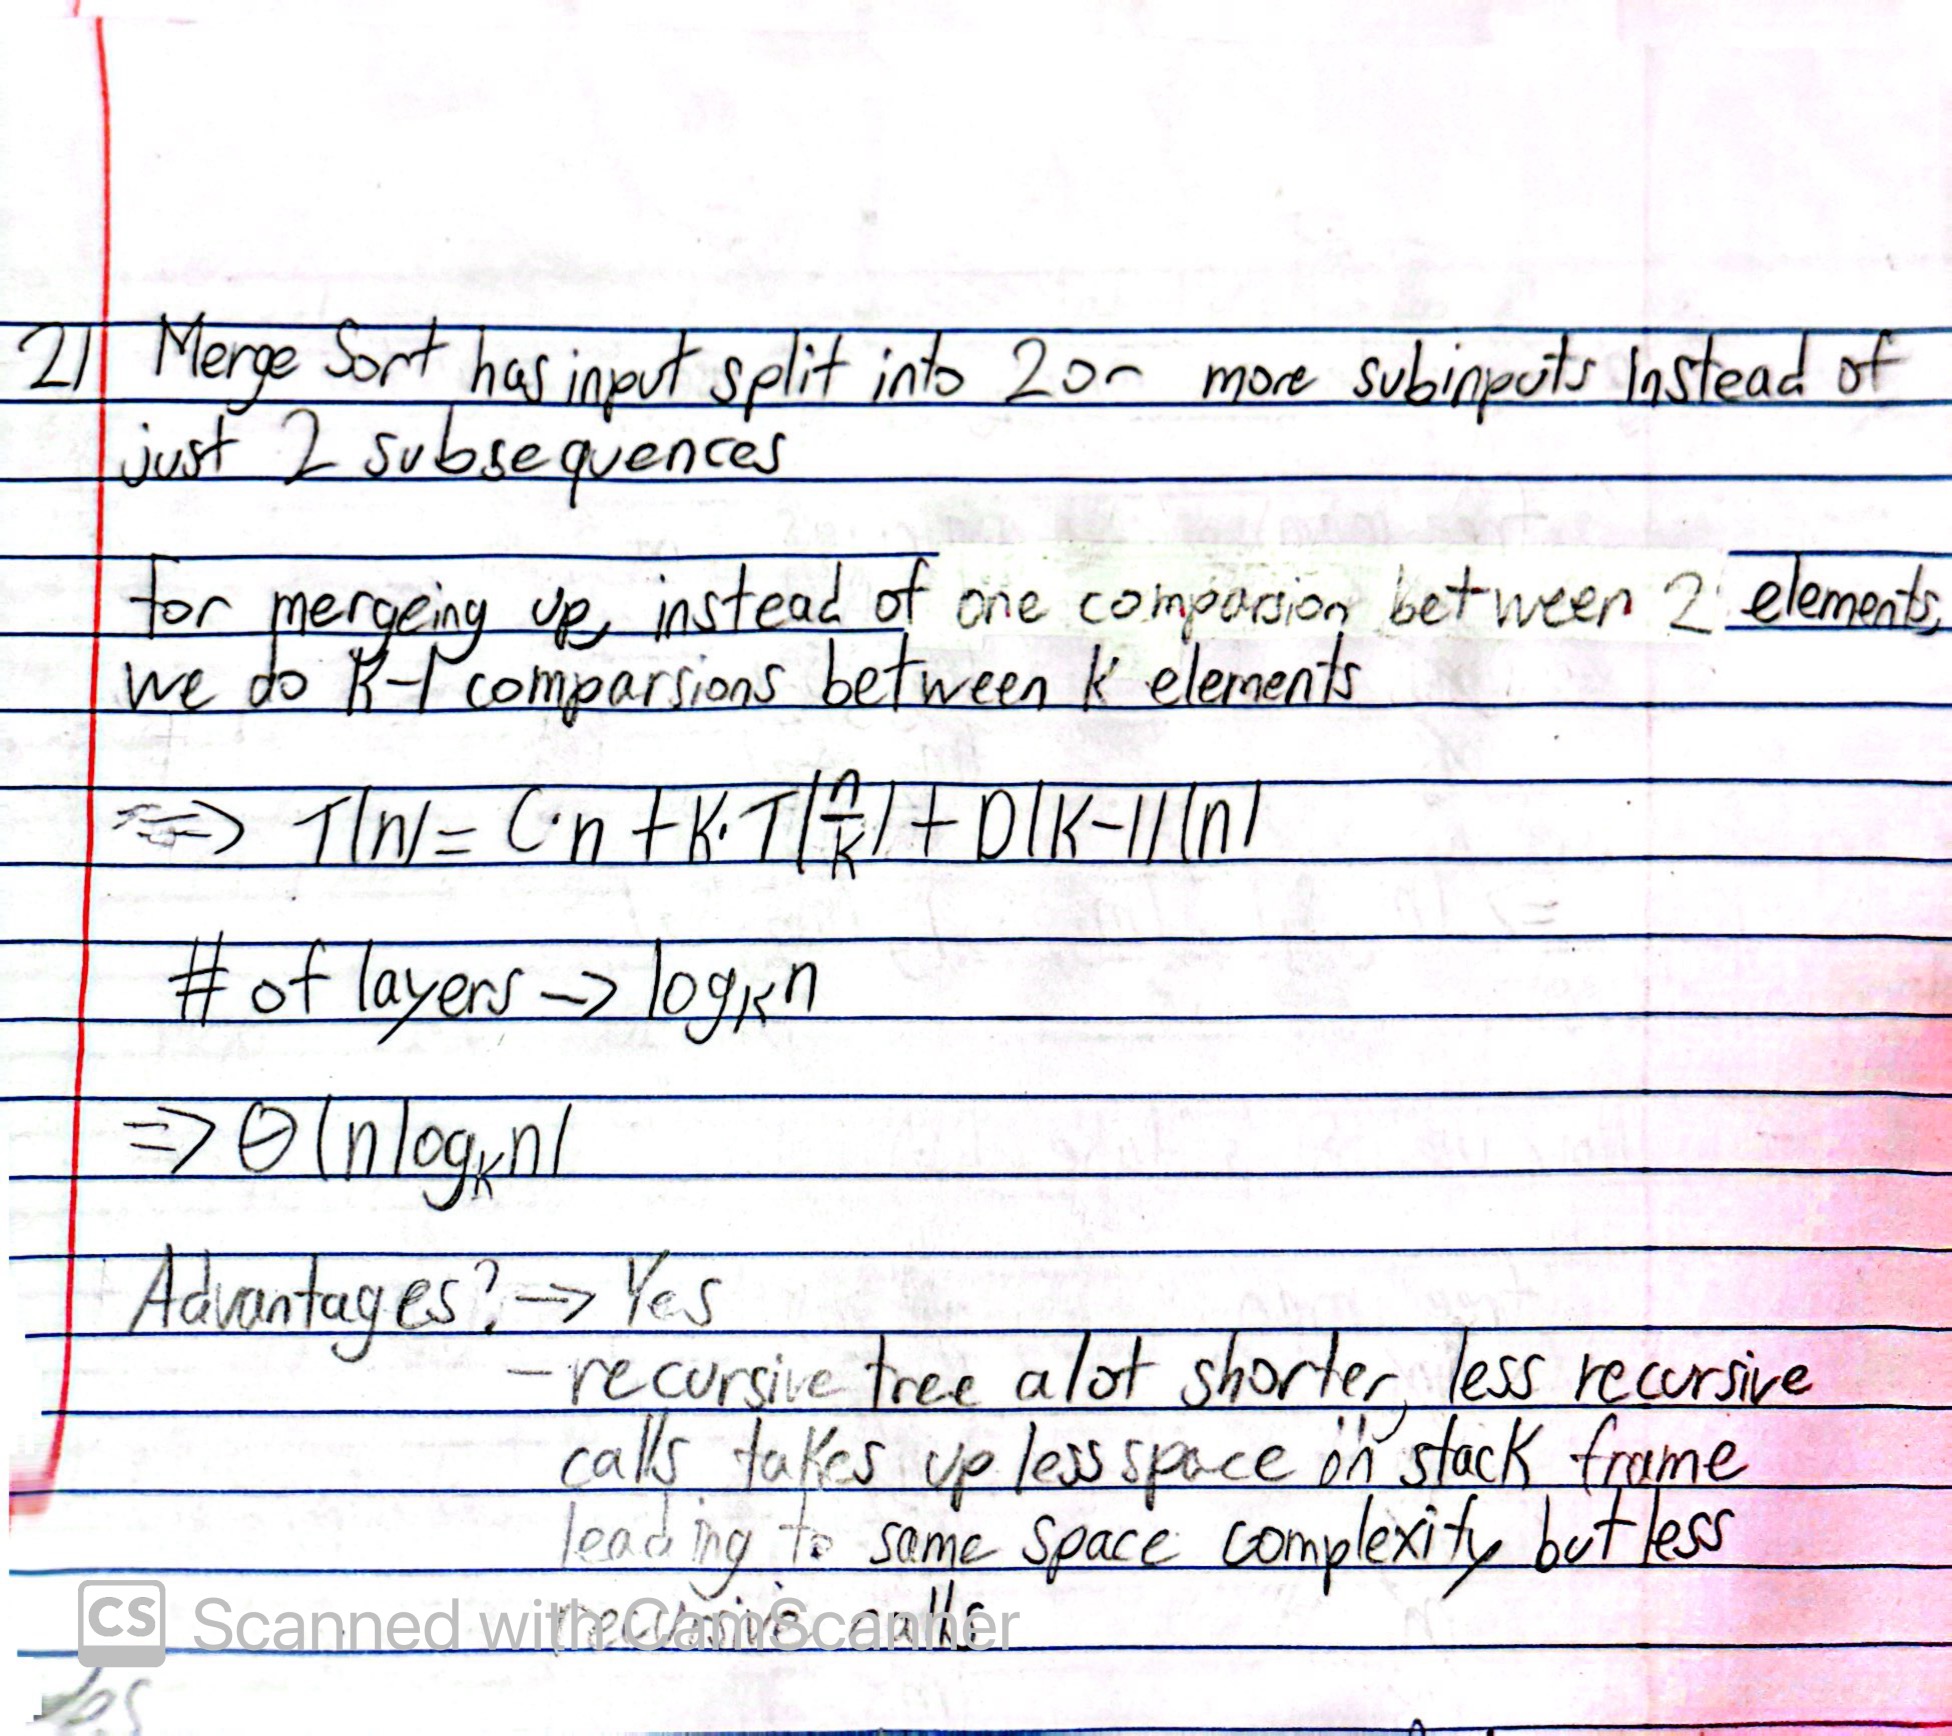 2) Merge Sort has input split into 2 or more subinputs instead of
just 2 subsequences
for mergeing up, instead of one comparsion between 2 elements,
we do K-1 comparsions between k elements
=> T(n) = C·n + K·T(n/k) + D(K-1)(n)
# of layers -> logₖn
=> Θ(n logₖn)
Advantages? -> Yes
- recursive tree a lot shorter, less recursive
calls takes up less space in stack frame
leading to same space complexity but less
recursive calls
CS Scanned with CamScanner